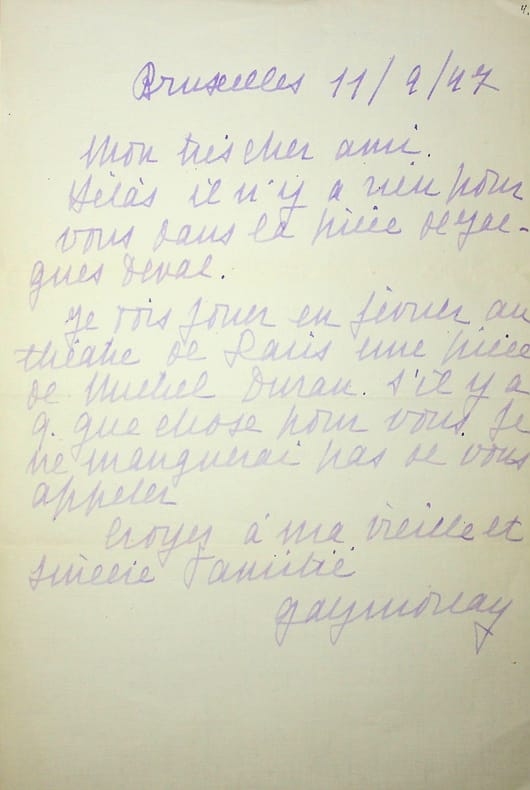 4.
Bruxelles 11/9/47
Mon très cher ami.
Hélàs il n'y a rien pour
vous dans la pièce de Jac-
ques Deval.
Je dois jouer en février au
théatre de Paris une pièce
de Michel Duran. S'il y a
q. que chose pour vous je
ne manquerai pas de vous
appeler
Croyez à ma vieille et
sincère amitié
gaby morlay